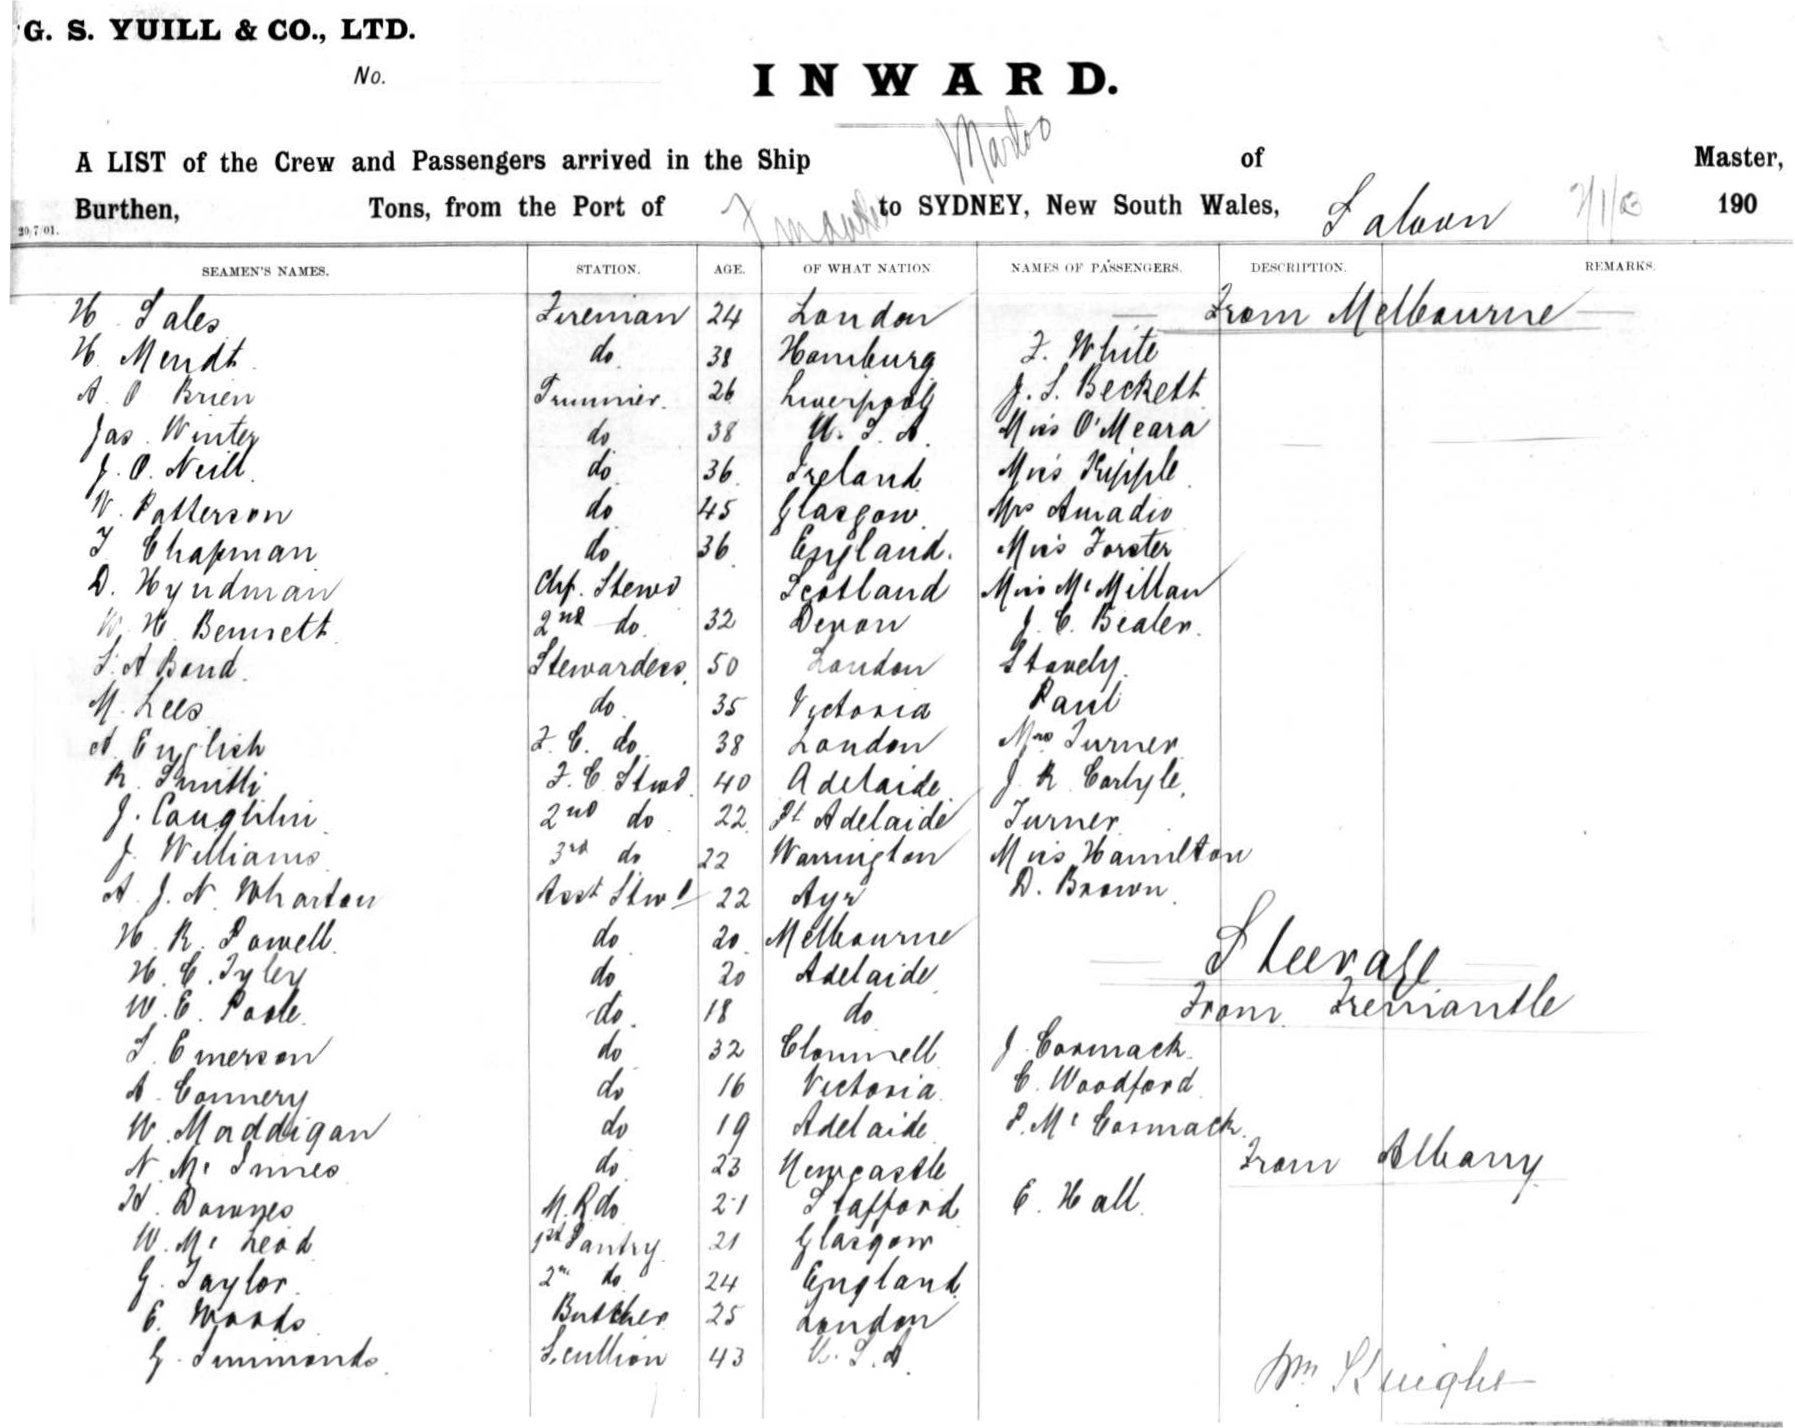 G. S. YUILL & CO., LTD.
No.
INWARD.
A LIST of the Crew and Passengers arrived in the Ship Marloo of Master,
Burthen, Tons, from the Port of Fmantle to SYDNEY, New South Wales, Saloon 190
20/7/01.
SEAMEN'S NAMES. STATION. AGE. OF WHAT NATION NAMES OF PASSENGERS. DESCRIPTION. REMARKS.
H. Sales Fireman 24 London From Melbourne
H. Mendt do 38 Hamburg F. White
A. O Brien Trimmer. 26 Liverpool J. S. Beckett
Jas. Winter do 38 U. S. A. Miss O'Meara
J. O. Neill. do 36 Ireland Miss Kipple
W. Patterson do 45 Glasgow. Mrs Amadio
T Chapman do 36 England. Miss Forster
D. Hyndman Chf. Stewd Scotland Miss McMillan
W. H. Bennett 2nd do. 32 Devon J. C. Bealer.
S. A Bond. Stewardess. 50 London Stavely.
M. Lees do 35 Victoria Paul
A. English F. C. do 38 London Mrs Turner
R. Smith F. C Stwd. 40 Adelaide J R Carlyle.
J. Coughlin 2nd do 22 Pt Adelaide Turner
J. Williams 3rd do 22 Warrington Miss Hamilton
A. J. N. Wharton Asst Stwd 22 Ayr D. Brown.
H. R. Powell. do 20 Melbourne
Steerage
H. C. Tyler do 20 Adelaide
W. E. Poole. do. 18 do From Fremantle
S. Emerson do 32 Clonmell J. Cormack.
A. Connery do 16 Victoria. C. Woodford
W. Maddigan do 19 Adelaide P. McCormack.
N. McInnes do 23 Newcastle From Albany
H. Downes M. R do 21 Stafford E. Hall.
W. McLeod 1st Pantry 21 Glasgow
G. Taylor. 2n do 24 England.
E. Woods Butcher 25 London
G. Simmonds. Scullion 43 U. S. A.
Wm Knight